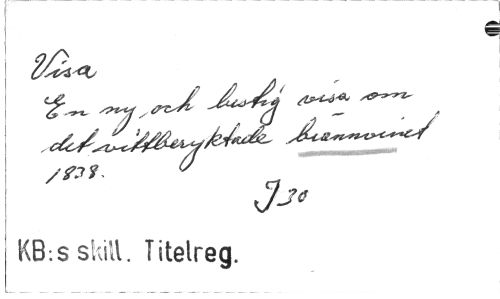 Visa
En ny och lustig visa om
det vittberyktade brännvinet
1838.
J 30
KB:s skill. Titelreg.